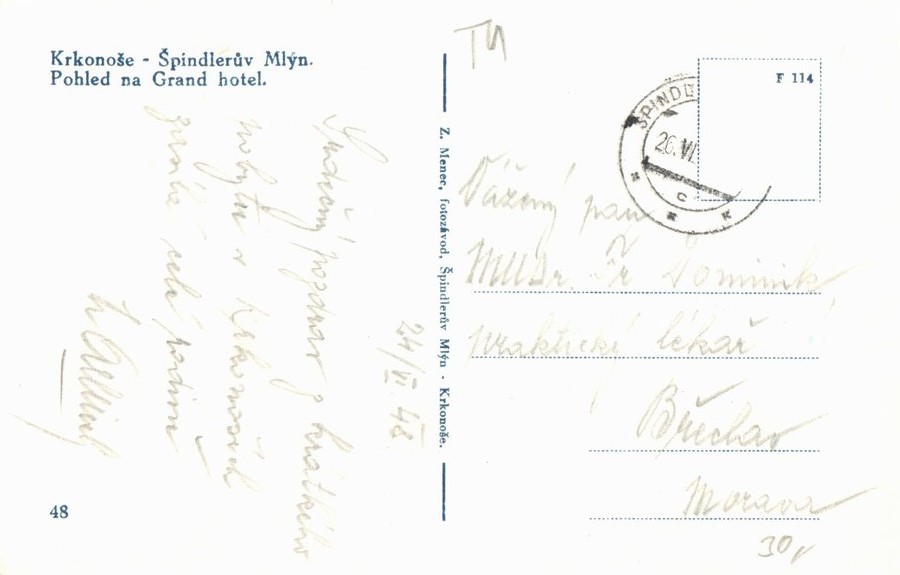 Krkonoše - Špindlerův Mlýn.
Pohled na Grand hotel.
F 114
ŠPINDL
26. VI.
Z. Menec, fotozávod, Špindlerův Mlýn - Krkonoše.
24/VI. 48
Srdečný pozdrav z krátkého
pobytu v Krkonoších
zasílá celé rodině
Vážený pan
MUDr. Fr. Dominik
praktický lékař
Břeclav
Morava
48
30,